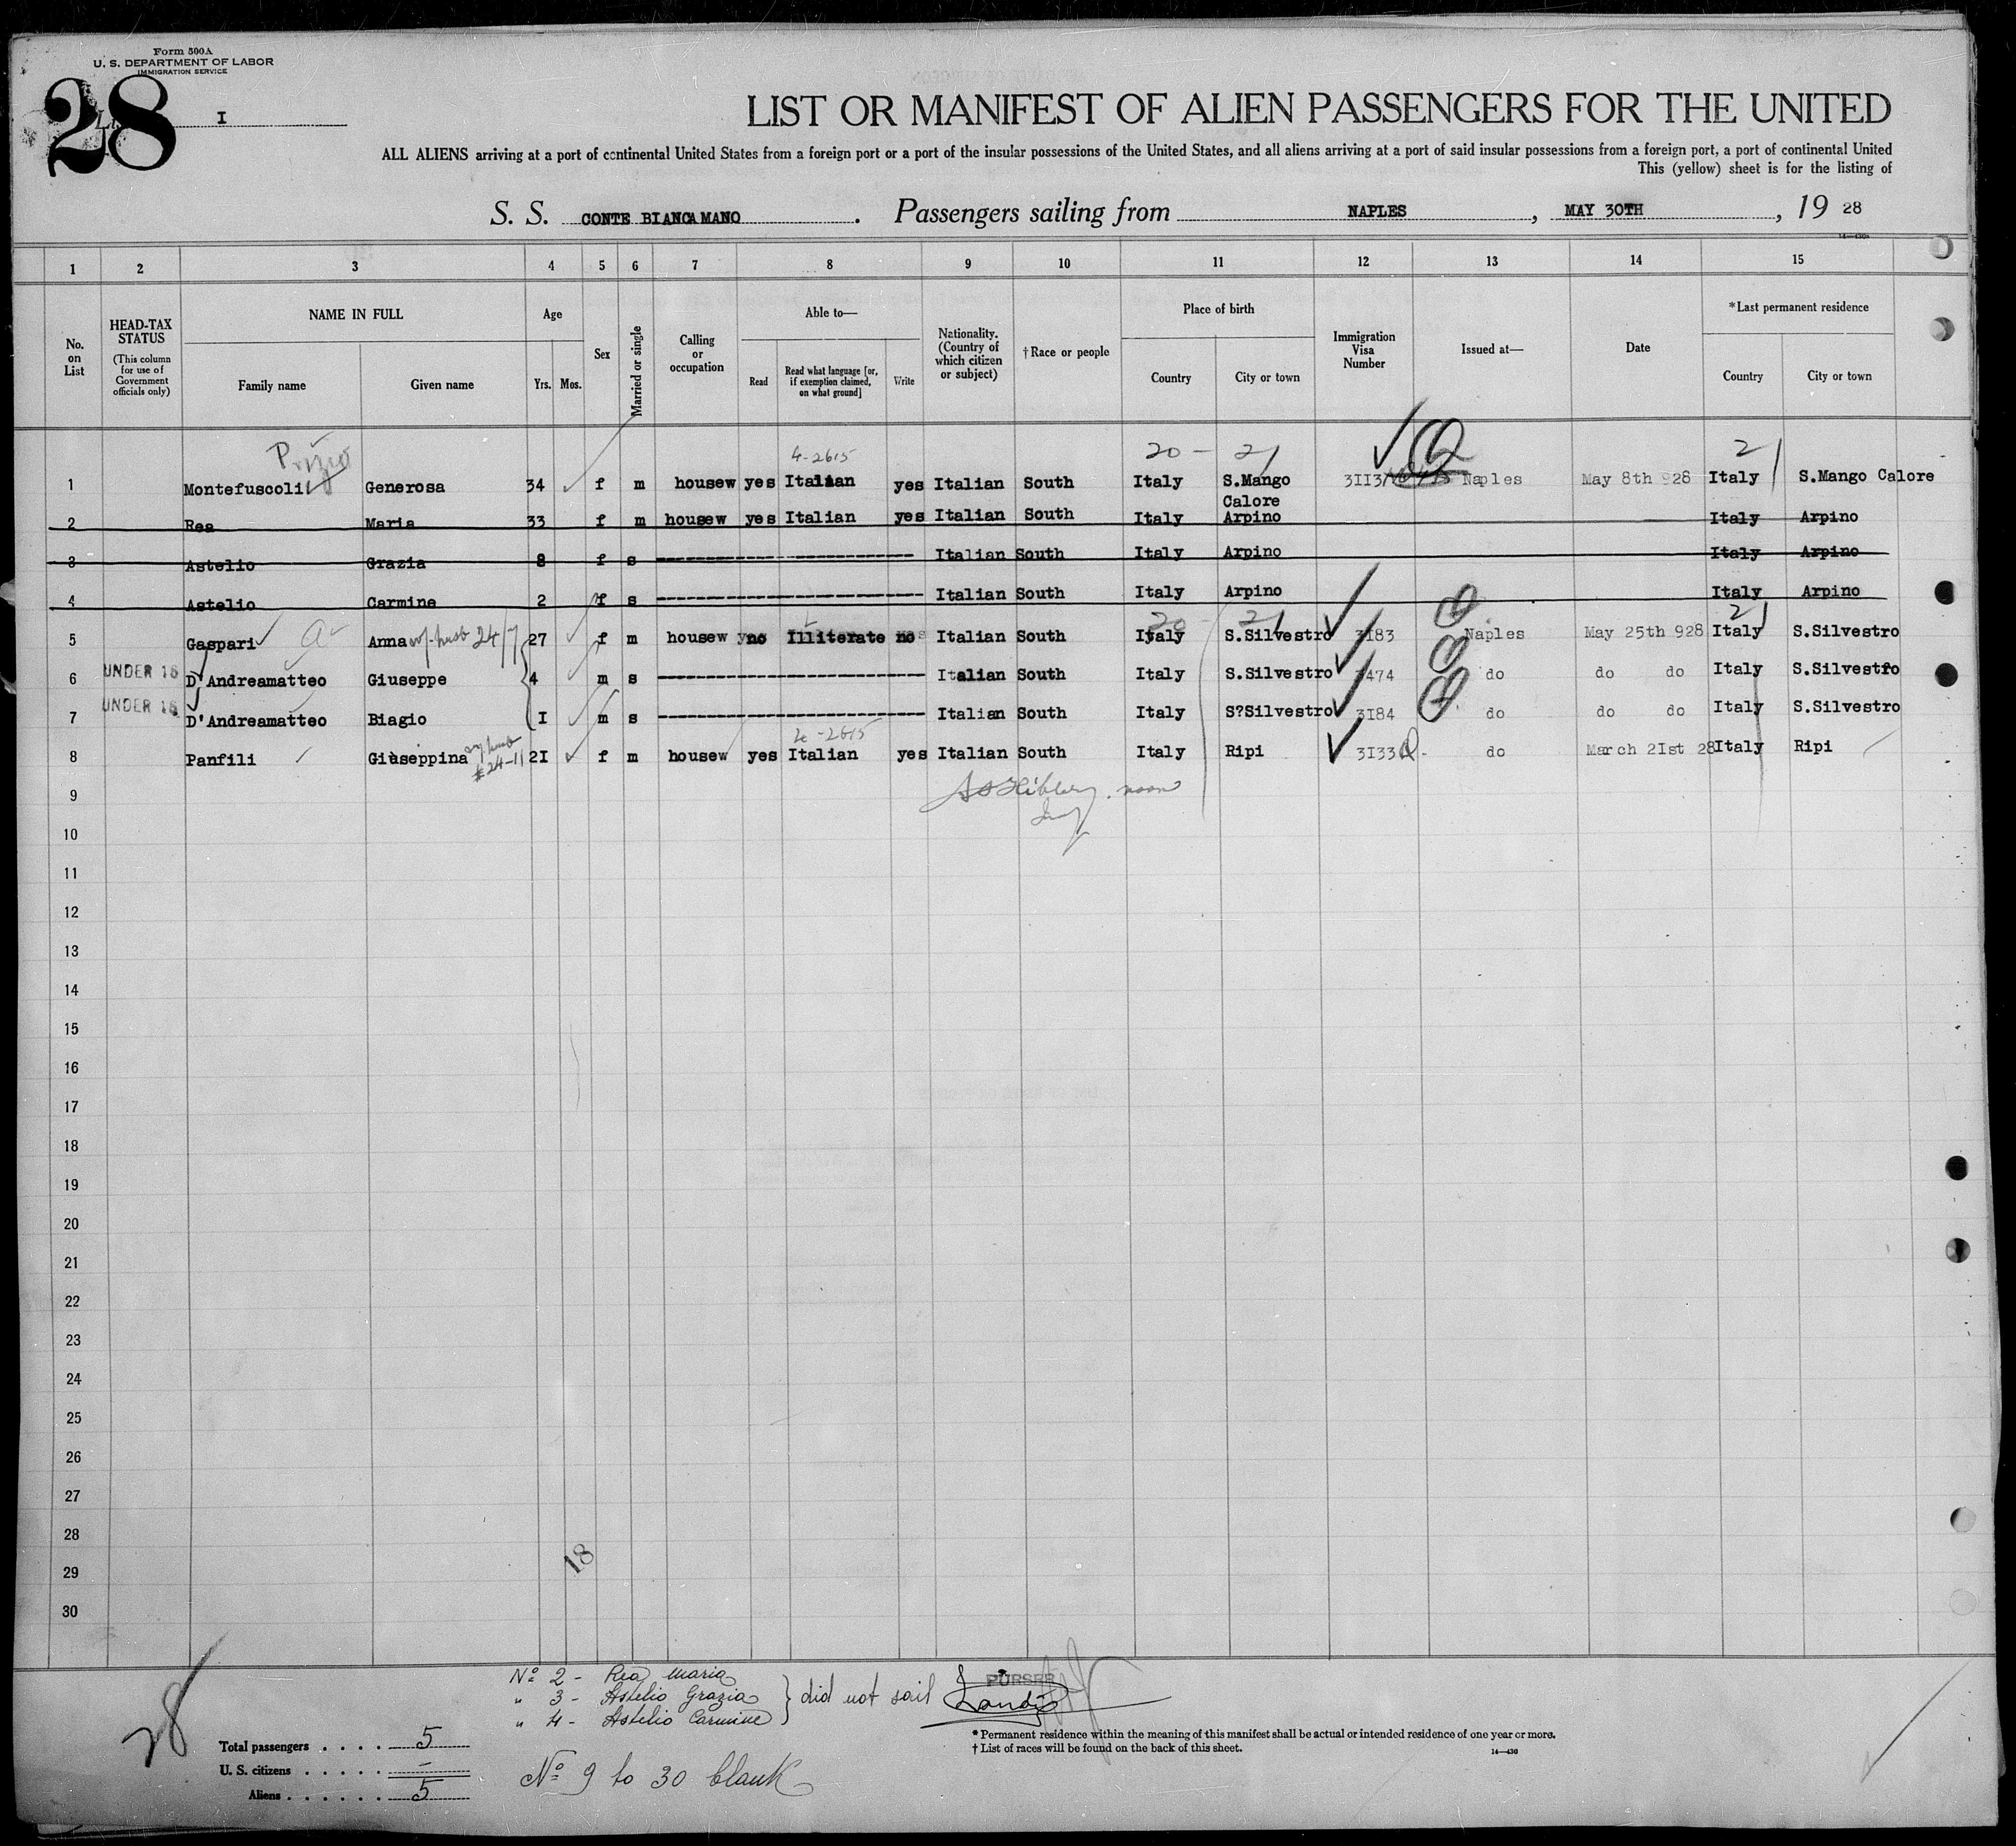 Form 500A
U. S. DEPARTMENT OF LABOR
IMMIGRATION SERVICE
28
I
LIST OR MANIFEST OF ALIEN PASSENGERS FOR THE UNITED
ALL ALIENS arriving at a port of continental United States from a foreign port or a port of the insular possessions of the United States, and all aliens arriving at a port of said insular possessions from a foreign port, a port of continental United
This (yellow) sheet is for the listing of
S. S. CONTE BIANCAMANO. Passengers sailing from NAPLES, MAY 30TH, 19 28
14—430
1 2 3 4 5 6 7 8 9 10 11 12 13 14 15
No. on List
HEAD-TAX STATUS (This column for use of Government officials only)
NAME IN FULL
Family name Given name
Age
Yrs. Mos.
Sex
Married or single
Calling or occupation
Able to—
Read Read what language [or, if exemption claimed, on what ground] Write
Nationality. (Country of which citizen or subject)
†Race or people
Place of birth
Country City or town
Immigration Visa Number
Issued at—
Date
*Last permanent residence
Country City or town
Prizio 4-2615 20 - 21 21
1 Montefuscolil Generosa 34 f m housew yes Italian yes Italian South Italy S.Mango Calore 3II3 Naples May 8th 928 Italy S.Mango Calore
2 Rea Maria 33 f m housew yes Italian yes Italian South Italy Arpino Italy Arpino
3 Astelio Grazia 8 f s Italian South Italy Arpino Italy Arpino
4 Astelio Carmine 2 f s Italian South Italy Arpino Italy Arpino
20 21 21
5 Gaspari Anna 24/7 27 f m housew no Illiterate no Italian South Italy S.Silvestro 3I83 Naples May 25th 928 Italy S.Silvestro
6 UNDER 16 D'Andreamatteo Giuseppe 4 m s Italian South Italy S.Silvestro 3474 do do do Italy S.Silvestro
7 UNDER 16 D'Andreamatteo Biagio I m s Italian South Italy S?Silvestro 3I84 do do do Italy S.Silvestro
4-2615
8 Panfili Giuseppina #24-11 2I f m housew yes Italian yes Italian South Italy Ripi 3I33 do March 2Ist 28 Italy Ripi
9
10
11
12
13
14
15
16
17
18
19
20
21
22
23
24
25
26
27
28
29
30
18
No 2 - Rea Maria
" 3 - Astelio Grazia } did not sail
" 4 - Astelio Carmine
PURSER
28
* Permanent residence within the meaning of this manifest shall be actual or intended residence of one year or more.
† List of races will be found on the back of this sheet.
14—430
Total passengers . . . . 5
U. S. citizens . . . . . –
Aliens . . . . . . 5
No 9 to 30 blank